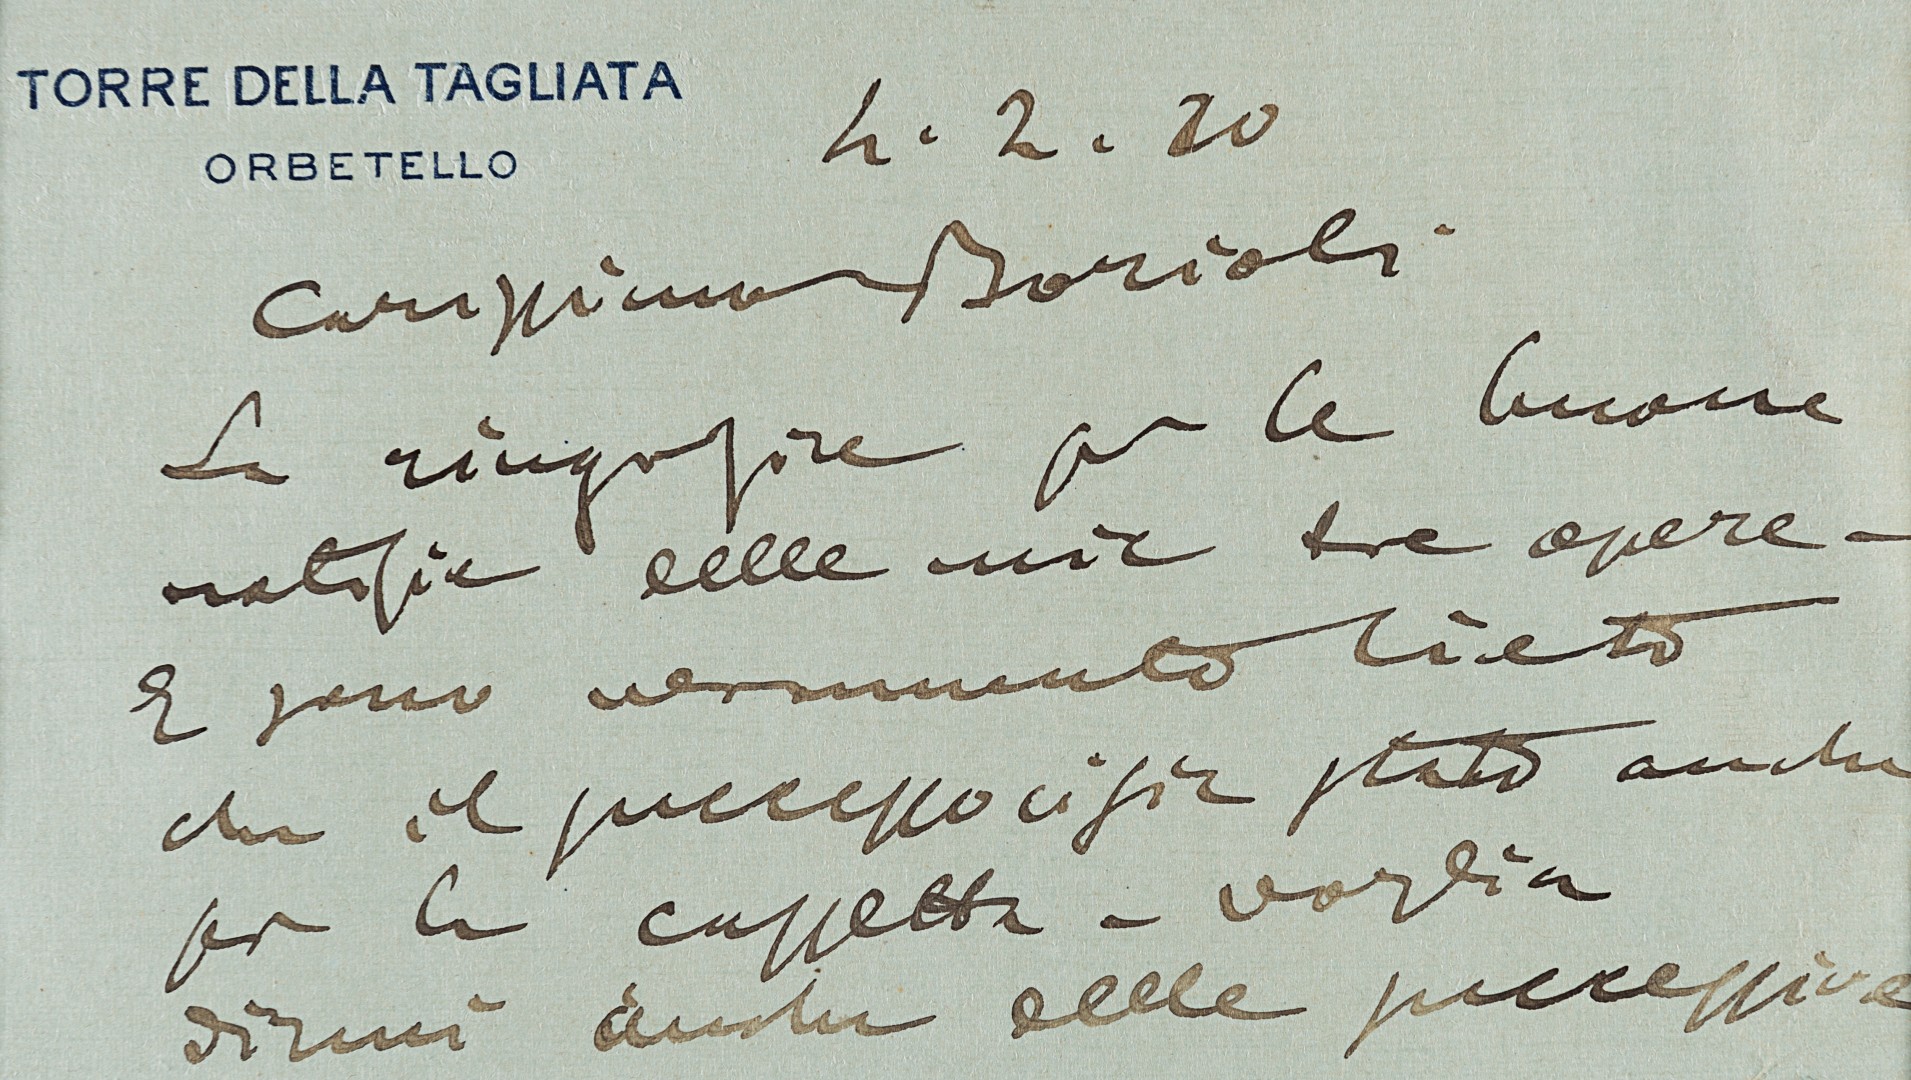 TORRE DELLA TAGLIATA
ORBETELLO
4.2.20
Carissimo Barioli
La ringrazio per le buone
notizie delle mie tre opere -
E sono veramente lieto
che il successo ci sia stato anche
per la cassetta - voglia
dirmi anche delle successive